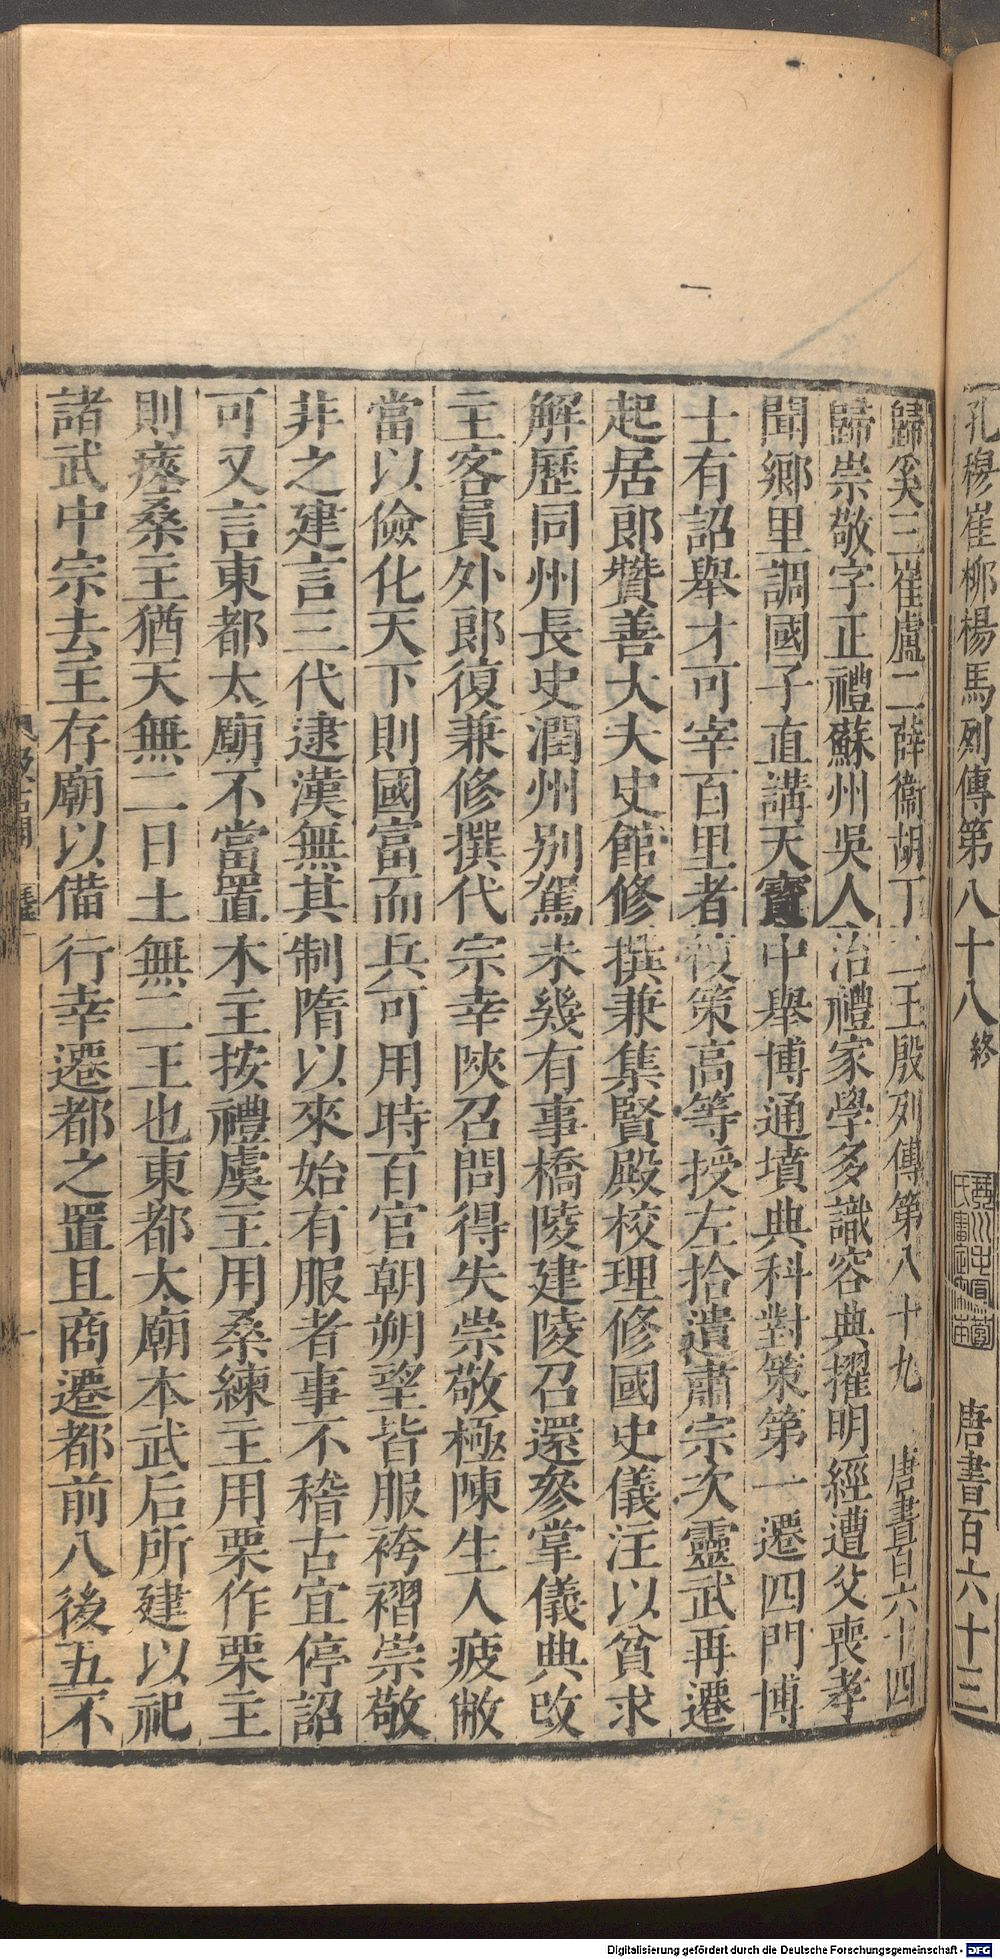 孔穆崔柳楊馬列傳第八十八終 唐書百六十三
歸奚三崔盧二薛衞胡丁二王殷列傳第八十九 唐書百六十四
歸崇敬字正禮蘇州吳人治禮家學多識容典擢明經遭父喪孝
聞鄉里調國子直講天寶中舉博通墳典科對策第一遷四門博
士有詔舉才可宰百里者復策高等授左拾遺肅宗次靈武再遷
起居郎贊善大夫史館修撰兼集賢殿校理修國史儀注以貧求
解歷同州長史潤州別駕未幾有事橋陵建陵召還參掌儀典改
主客員外郎復兼修撰代宗幸陝召問得失崇敬極陳生人疲敝
當以儉化天下則國富而兵可用時百官朝朔望皆服袴褶崇敬
非之建言三代逮漢無其制隋以來始有服者事不稽古宜停詔
可又言東都太廟不當置木主按禮虞主用桑練主用栗作栗主
則瘞桑主猶天無二日土無二王也東都太廟本武后所建以祀
諸武中宗去主存廟以備行幸遷都之置且商遷都前八後五不
Digitalisierung gefördert durch die Deutsche Forschungsgemeinschaft - DFG